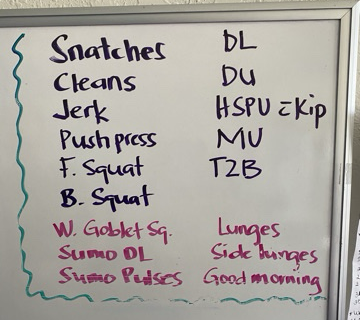 Snatches DL
Cleans DU
Jerk HSPU = Kip
Push press MU
F. Squat T2B
B. Squat
W. Goblet Sq. Lunges
Sumo DL Side lunges
Sumo Pulses Good morning